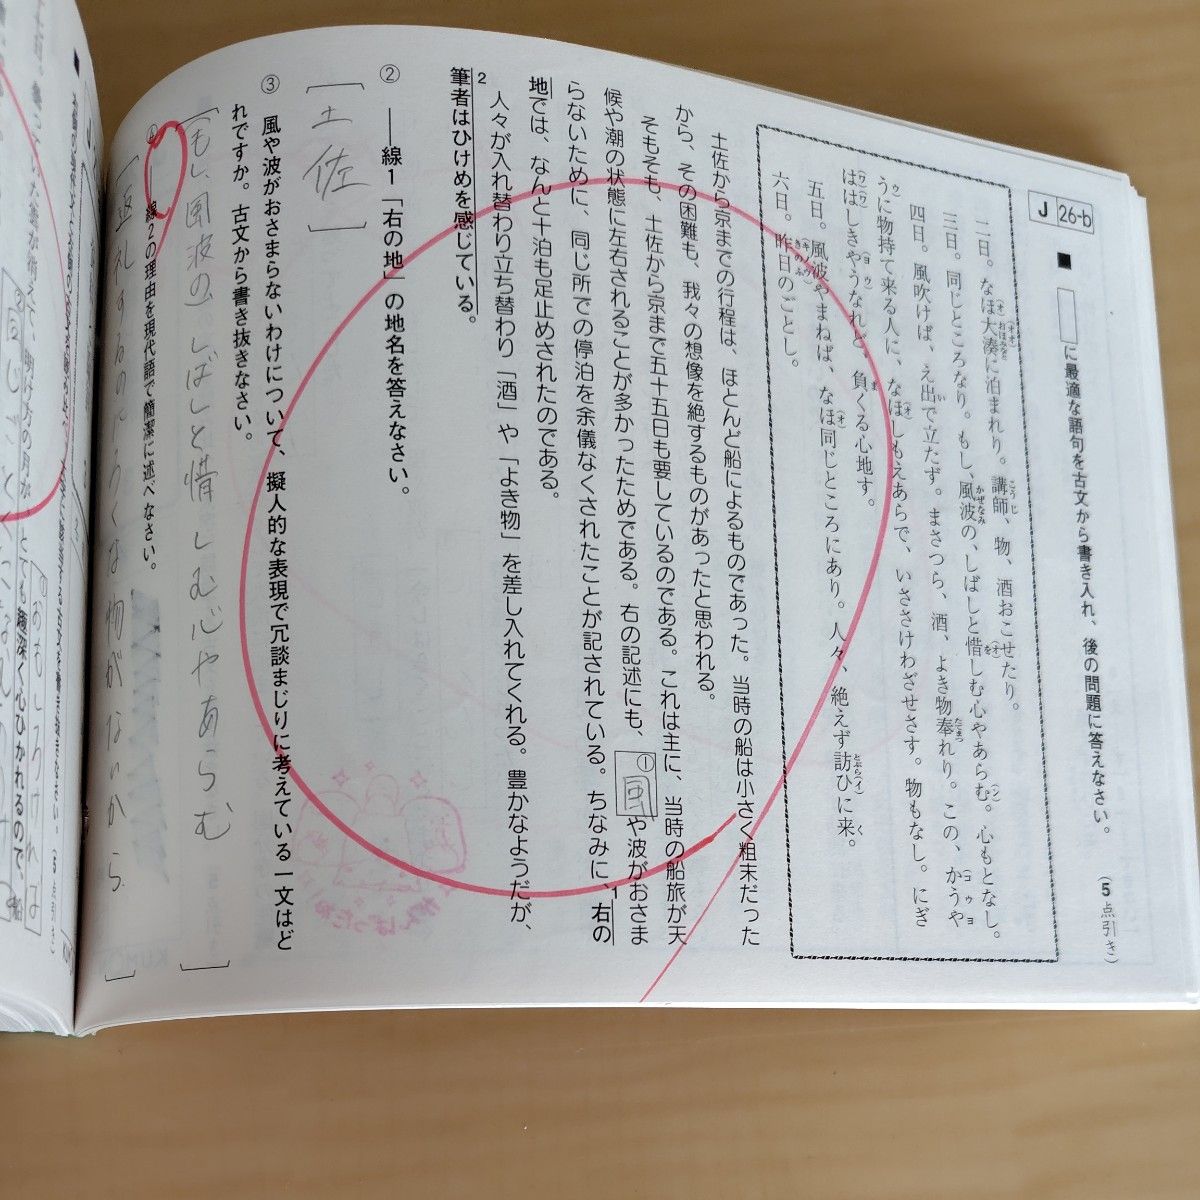 J 26-b
■ □に最適な語句を古文から書き入れ、後の問題に答えなさい。
(5点引き)
二日。なほ大湊に泊まれり。講師、物、酒おこせたり。
三日。同じところなり。もし、風波の、しばしと惜しむ心やあらむ。心もとなし。
四日。風吹けば、え出で立たず。まさつら、酒、よき物奉れり。この、かうや
うに物持て来る人に、なほしもえあらで、いささけわざせさす。物もなし。にぎ
ははしきやうなれど、負くる心地す。
五日。風波やまねば、なほ同じところにあり。人々、絶えず訪ひに来。
六日。昨日のごとし。
土佐から京までの行程は、ほとんど船によるものであった。当時の船は小さく粗末だった
から、その困難も、我々の想像を絶するものがあったと思われる。
そもそも、土佐から京まで五十五日も要しているのである。これは主に、当時の船旅が天
候や潮の状態に左右されることが多かったためである。右の記述にも、①風や波がおさま
らないために、同じ所での停泊を余儀なくされたことが記されている。ちなみに、1右の
地では、なんと十泊も足止めされたのである。
人々が入れ替わり立ち替わり「酒」や「よき物」を差し入れてくれる。豊かなようだが、
2筆者はひけめを感じている。
② ――線1「右の地」の地名を答えなさい。
［土佐］
③ 風や波がおさまらないわけについて、擬人的な表現で冗談まじりに考えている一文はど
れですか。古文から書き抜きなさい。
［もし、風波の、しばしと惜しむ心やあらむ］
④ ――線2の理由を現代語で簡潔に述べなさい。
［返礼するのにろくな物がないから］
がんばったね